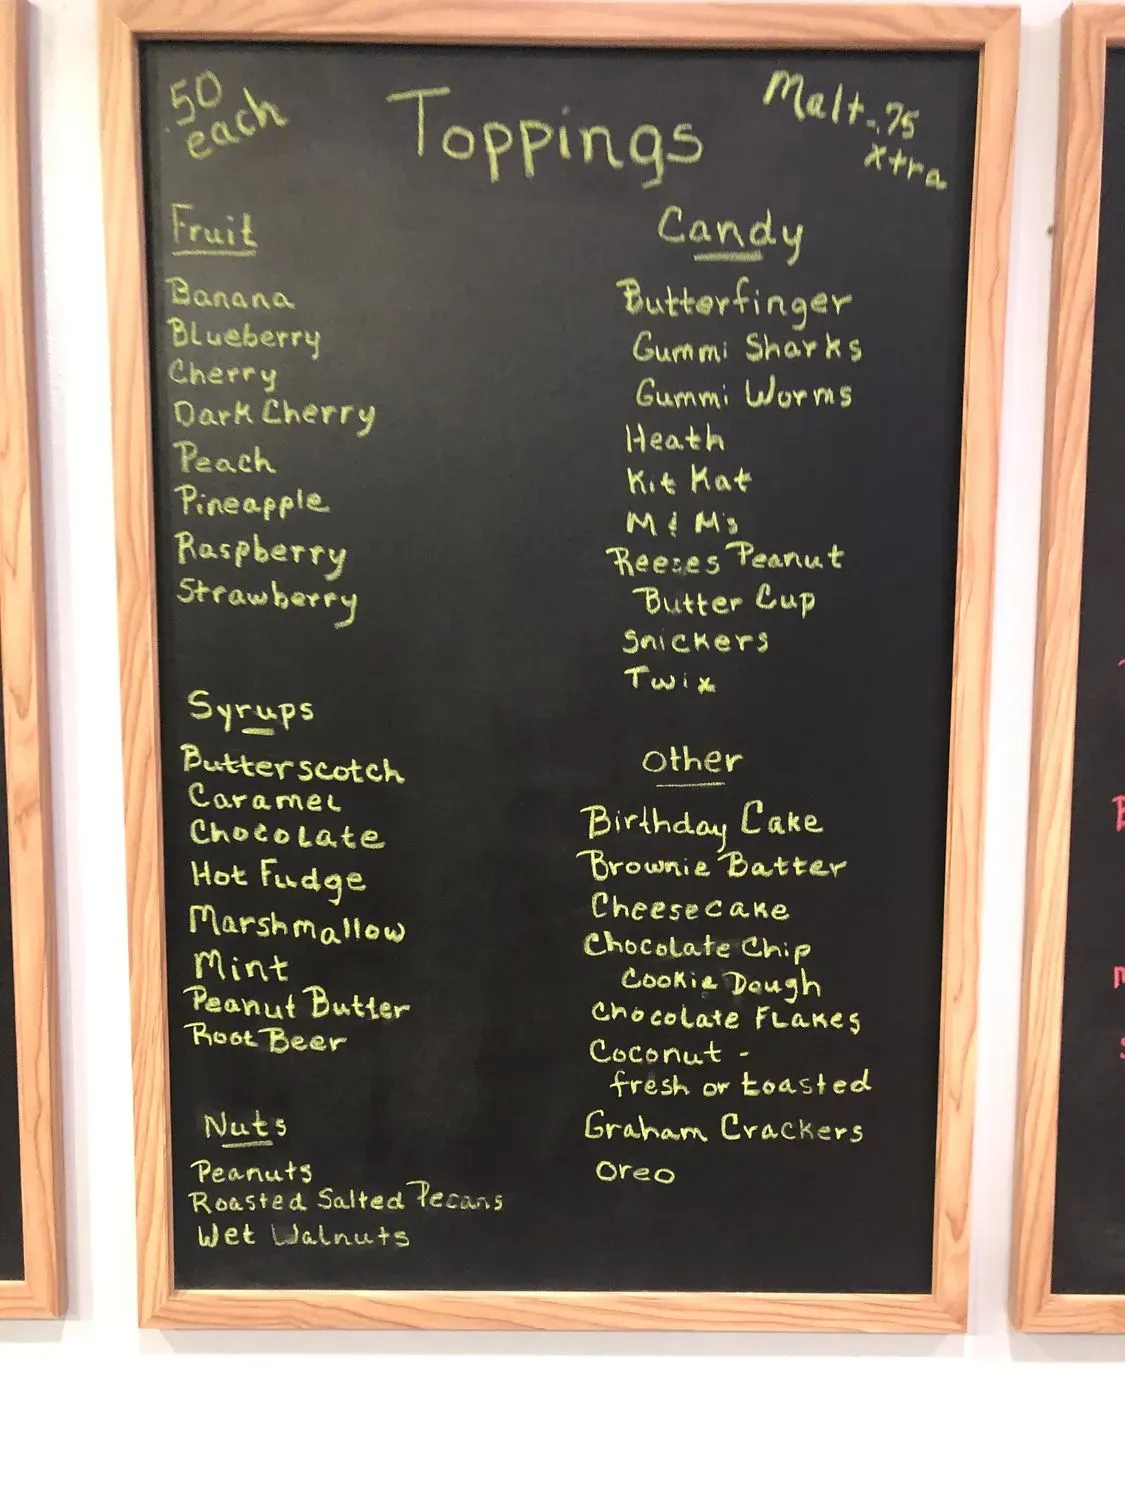 .50
each
Toppings
Malt-.75
xtra
Fruit
Banana
Blueberry
Cherry
Dark Cherry
Peach
Pineapple
Raspberry
Strawberry
Syrups
Butterscotch
Caramel
Chocolate
Hot Fudge
Marshmallow
Mint
Peanut Butter
Root Beer
Nuts
Peanuts
Roasted Salted Pecans
Wet Walnuts
Candy
Butterfinger
Gummi Sharks
Gummi Worms
Heath
Kit Kat
M & M's
Reeses Peanut
Butter Cup
Snickers
Twix
Other
Birthday Cake
Brownie Batter
Cheesecake
Chocolate Chip
Cookie Dough
Chocolate Flakes
Coconut -
fresh or toasted
Graham Crackers
Oreo